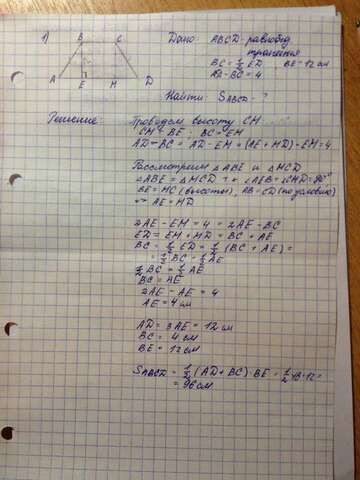 1)
B C
A E M D
Дано: ABCD - равнобед
трапеция
BC = 1/2 ED BE = 12 см
AD - BC = 4
Найти: SABCD - ?
Решение: Проведем высоту CM
CM = BE; BC = EM
AD - BC = AD - EM = (AE + MD) - EM = 4
Рассмотрим △ABE и △MCD
△ABE = △MCD т.к ∠AEB = ∠CMD = 90°
BE = MC (высоты), AB = CD (по условию)
AE = MD
2AE - EM = 4 = 2AE - BC
ED = EM + MD = BC + AE
BC = 1/2 ED = 1/2 (BC + AE) =
= 1/2 BC + 1/2 AE
1/2 BC = 1/2 AE
BC = AE
2AE - AE = 4
AE = 4 см
AD = 3AE = 12 см
BC = 4 см
BE = 12 см
SABCD = 1/2 (AD + BC) · BE = 1/2 · 12 =
= 96 см